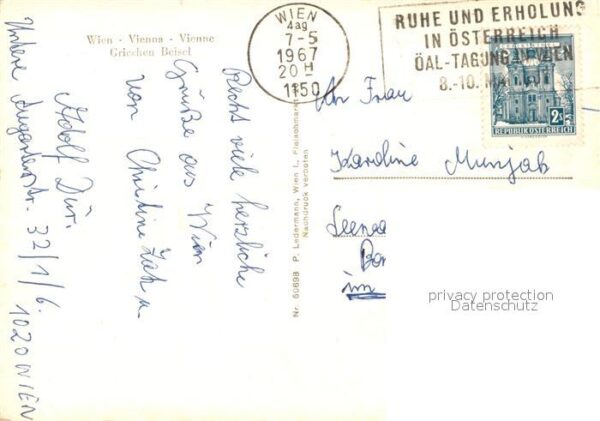 Wien - Vienna - Vienne
Griechen Beisel
WIEN
4ag
7-5
1967
20 H
1150
RUHE UND ERHOLUNG
IN ÖSTERREICH
ÖAL-TAGUNG WIEN
8.-10. MAI
2 S
REPUBLIK ÖSTERREICH
Recht viele herzliche
Grüße aus Wien
von Christine u.
Adolf
Untere Augartenstr. 32/1/6.
1020 WIEN
Nr. 6068B P. Ledermann, Wien I., Fleischmarkt
Nachdruck verboten
Frau
Karoline
im
privacy protection
Datenschutz